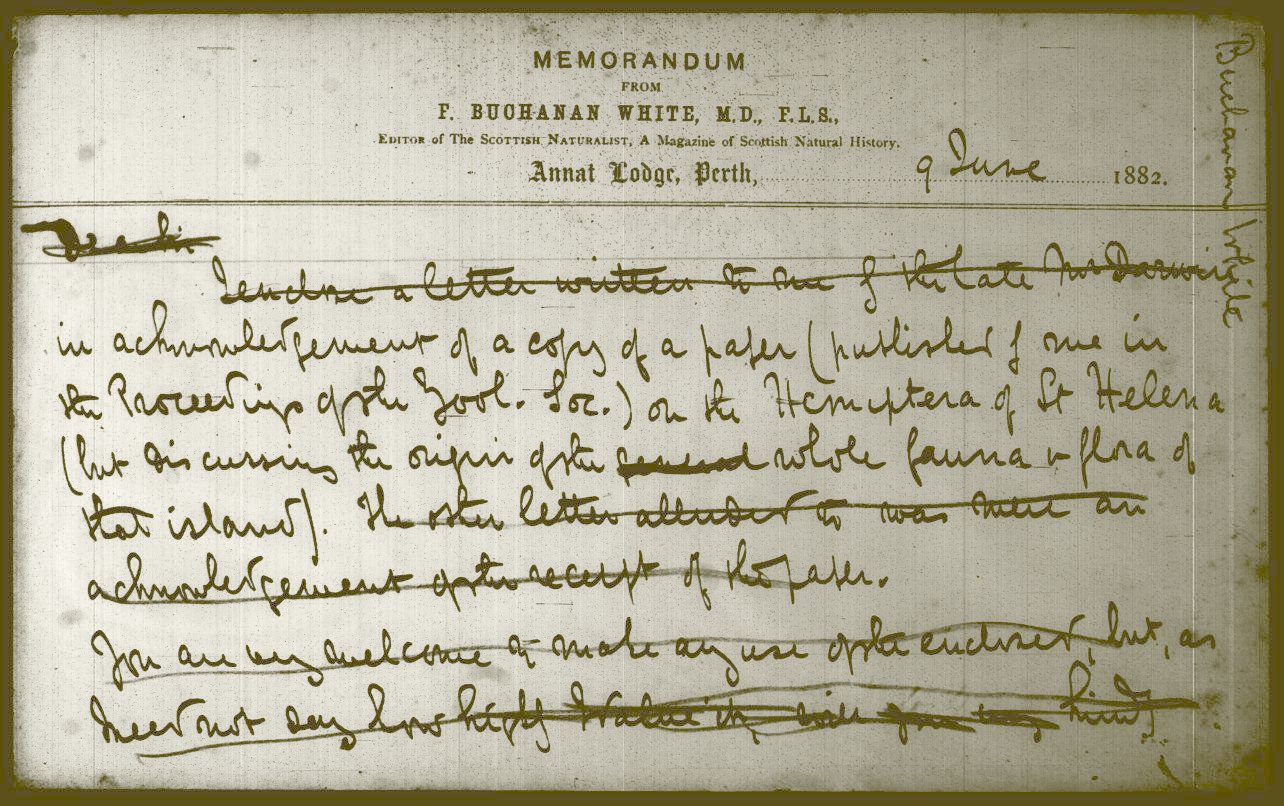 MEMORANDUM
FROM
F. BUCHANAN WHITE, M.D., F.L.S.,
EDITOR of THE SCOTTISH NATURALIST, A Magazine of Scottish Natural History.
Annat Lodge, Perth, 9 June 1882.
Buchanan White
Dear Sir
I enclose a letter written to me by the late Mr Darwin
in acknowledgement of a copy of a paper (published by me in
the Proceedings of the Zool. Soc.) on the Hemiptera of St Helena
(but discussing the origin of the general whole fauna & flora of
that island). The other letter alluded to was mere an
acknowledgement of the receipt of the paper.
You are very welcome to make any use of the enclosed, but, as
I need not say how highly I value it, will you kindly